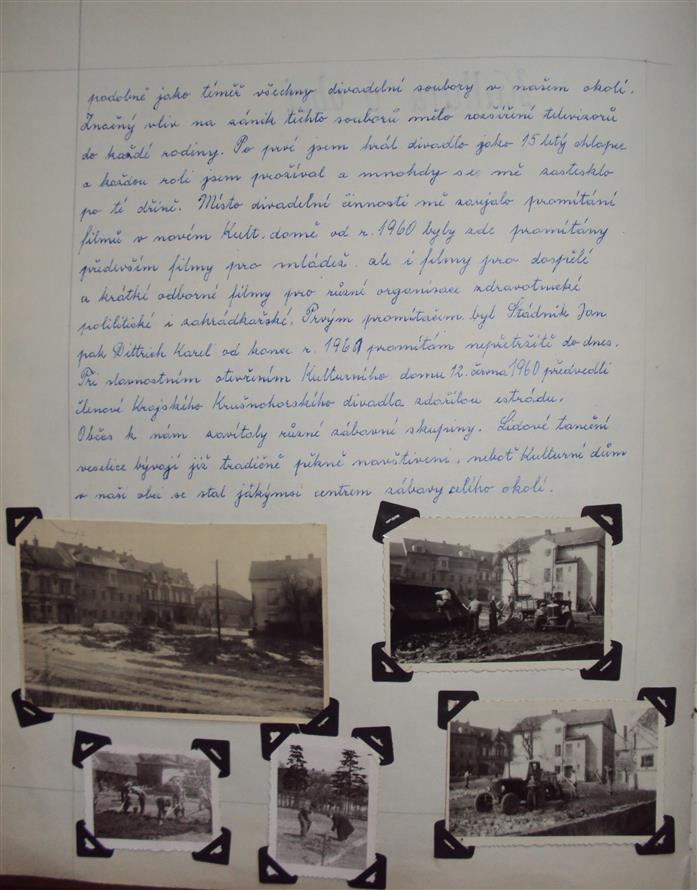 podobně jako téměř všechny divadelní soubory v našem okolí.
Značný vliv na zánik těchto souborů mělo rozšíření televizorů
do každé rodiny. Po prvé jsem hrál divadlo jako 15 letý chlapec
a každou roli jsem prožíval a mnohdy se mě zastesklo
po té dřině. Místo divadelní činnosti mě zaujalo promítání
filmů v novém Kult. domě od r. 1960 byly zde promítány
především filmy pro mládež, ale i filmy pro dospělé
a krátké odborné filmy pro různé organisace zdravotnické
polilitické i zahrádkařské. Prvým promítačem byl Štádník Jan
pak Dittrich Karel od konec r. 1961 promítám nepřetržitě do dnes.
Při slavnostním otevřením Kulturního domu 12. června 1960 předvedli
členové Krajského Krušnohorského divadla zdařilou estrádu.
Občas k nám zavítaly různé zábavní skupiny. Lidové taneční
veselice bývají již tradičně pěkně navštíveni, neboť Kulturní dům
v naší obci se stal jakýmsi centrem zábavy celého okolí.